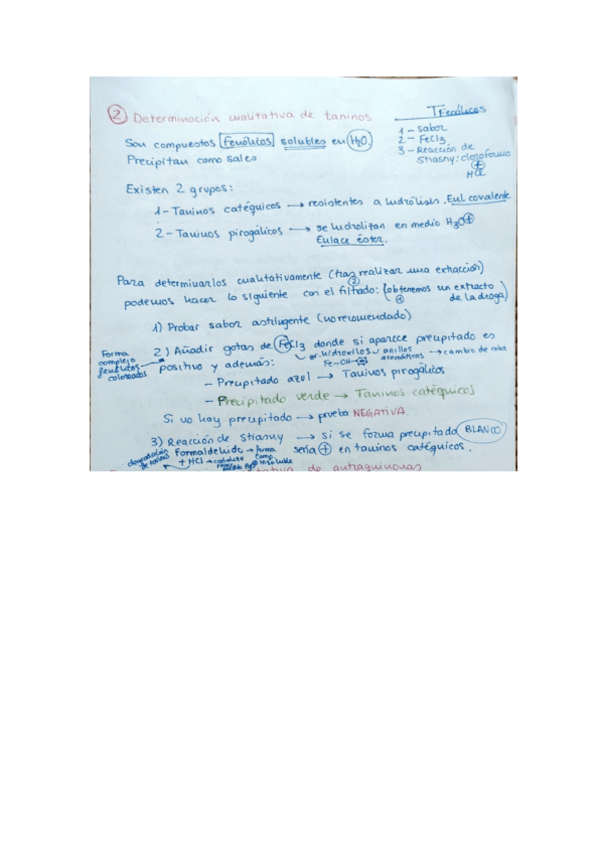 2 Determinación cualitativa de taninos
T Fenólicos
1 - Sabor
2 - FeCl3
3 - Reacción de
Stiasny: cloroformo
+
HCl
Son compuestos fenólicos solubles en H2O.
Precipitan como sales
Existen 2 grupos:
1 - Taninos catéquicos → resistentes a hidrólisis. Enl. covalente
2 - Taninos pirogálicos → se hidrolizan en medio H3O+
Enlace éster.
Para determinarlos cualitativamente (tras realizar una extracción)
podemos hacer lo siguiente con el filtrado: (obtenemos un extracto
de la droga)
1) Probar sabor astringente (no recomendado)
2) Añadir gotas de FeCl3 donde si aparece precipitado es
gr. hidroxilos y anillos aromáticos → cambio de color
Fe-OH
Forma
complejo
fenólicos
coloreados
positivo y además:
- Precipitado azul → Taninos pirogálicos
- Precipitado verde → Taninos catéquicos
Si no hay precipitado → prueba NEGATIVA
3) Reacción de Stiasny → si se forma precipitado BLANCO
Formaldehído → forma comp. insoluble
sería + en taninos catéquicos.
+ HCl → cataliza
degradación
de taninos
de antraquinonas